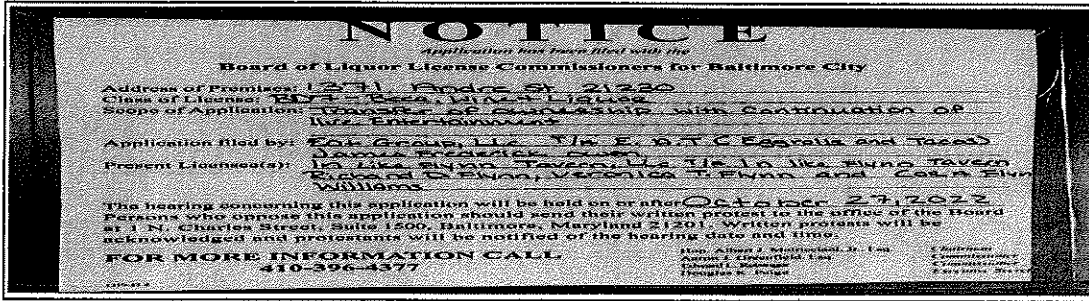 NOTICE
Application has been filed with the
Board of Liquor License Commissioners for Baltimore City
Address of Premises: 1371 Andre St 21230
Class of License: Beer, Wine & Liquor
Scope of Application: Transfer of ownership with Continuation of
live Entertainment
Application filed by: Group, LLC T/a E.D.T (Eggrolls and Tacos)
Frederick
Present Licensee(s): In Like Flynn Tavern, LLC T/a In like Flynn Tavern
Richard D Flynn, Veronica T. Flynn and Flynn
Williams
The hearing concerning this application will be held on or after October 27, 2022
Persons who oppose this application should send their written protest to the office of the Board
at 1 N. Charles Street, Suite 1500, Baltimore, Maryland 21201. Written protests will be
acknowledged and protestants will be notified of the hearing date and time.
FOR MORE INFORMATION CALL
410-396-4377
Albert J. Matricciani, Jr. Esq Chairman
Aaron J. Greenfield, Esq Commissioner
Douglas K. Paige